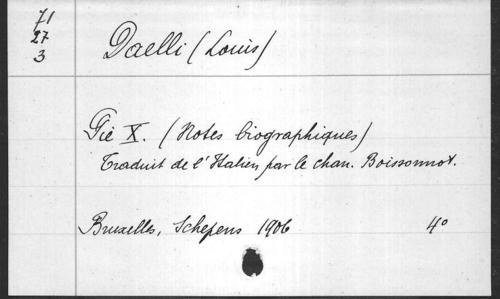 71
27
3
Daelli (Louis)
Pie X. (Notes biographiques)
Traduit de l'Italien par le chan. Boissonnot.
Bruxelles, Schepens 1906 4°